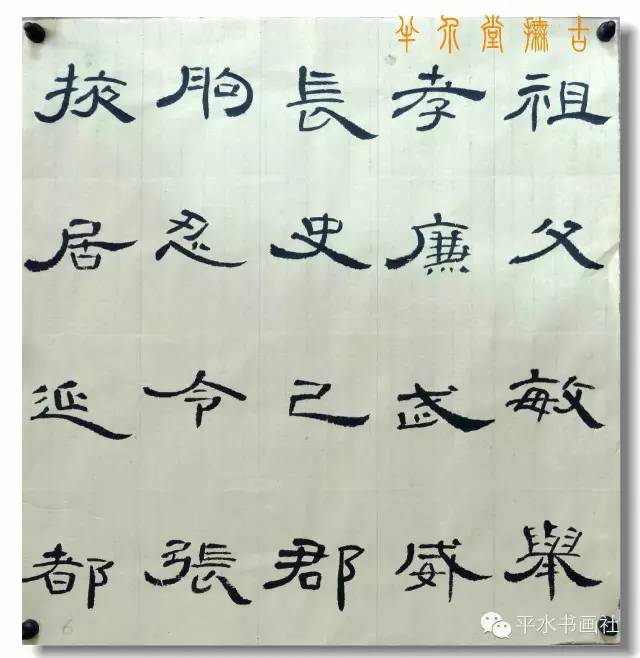 半尒堂橅古
祖父敏舉
孝廉武威
長史巴郡
朐忍令張
掖居延都
6
平水书画社